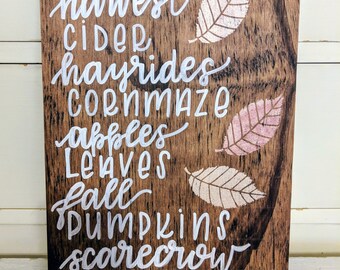 harvest
CIDER
hayrides
CORNMAZE
apples
LEAVES
fall
PUMPKINS
scarecrow